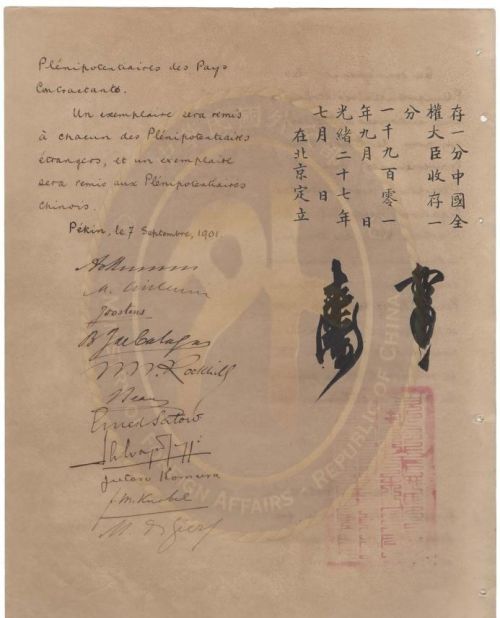 Plénipotentiaires des Pays
Contractants.
Un exemplaire sera remis
à chacun des Plénipotentiaires
étrangers, et un exemplaire
sera remis aux Plénipotentiaires
Chinois.
Pékin, le 7 Septembre, 1901.
Joostens
B J de Cologan
W. W. Rockhill
Beau
Ernest Satow
Salvago Raggi
Jutaro Komura
F. M. Knobel
M. de Giers
存一分中國全
權大臣收存一
分
一千九百零一
年九月 日
光緒二十七年
七月 日
在北京定立
FOREIGN AFFAIRS · REPUBLIC OF CHINA